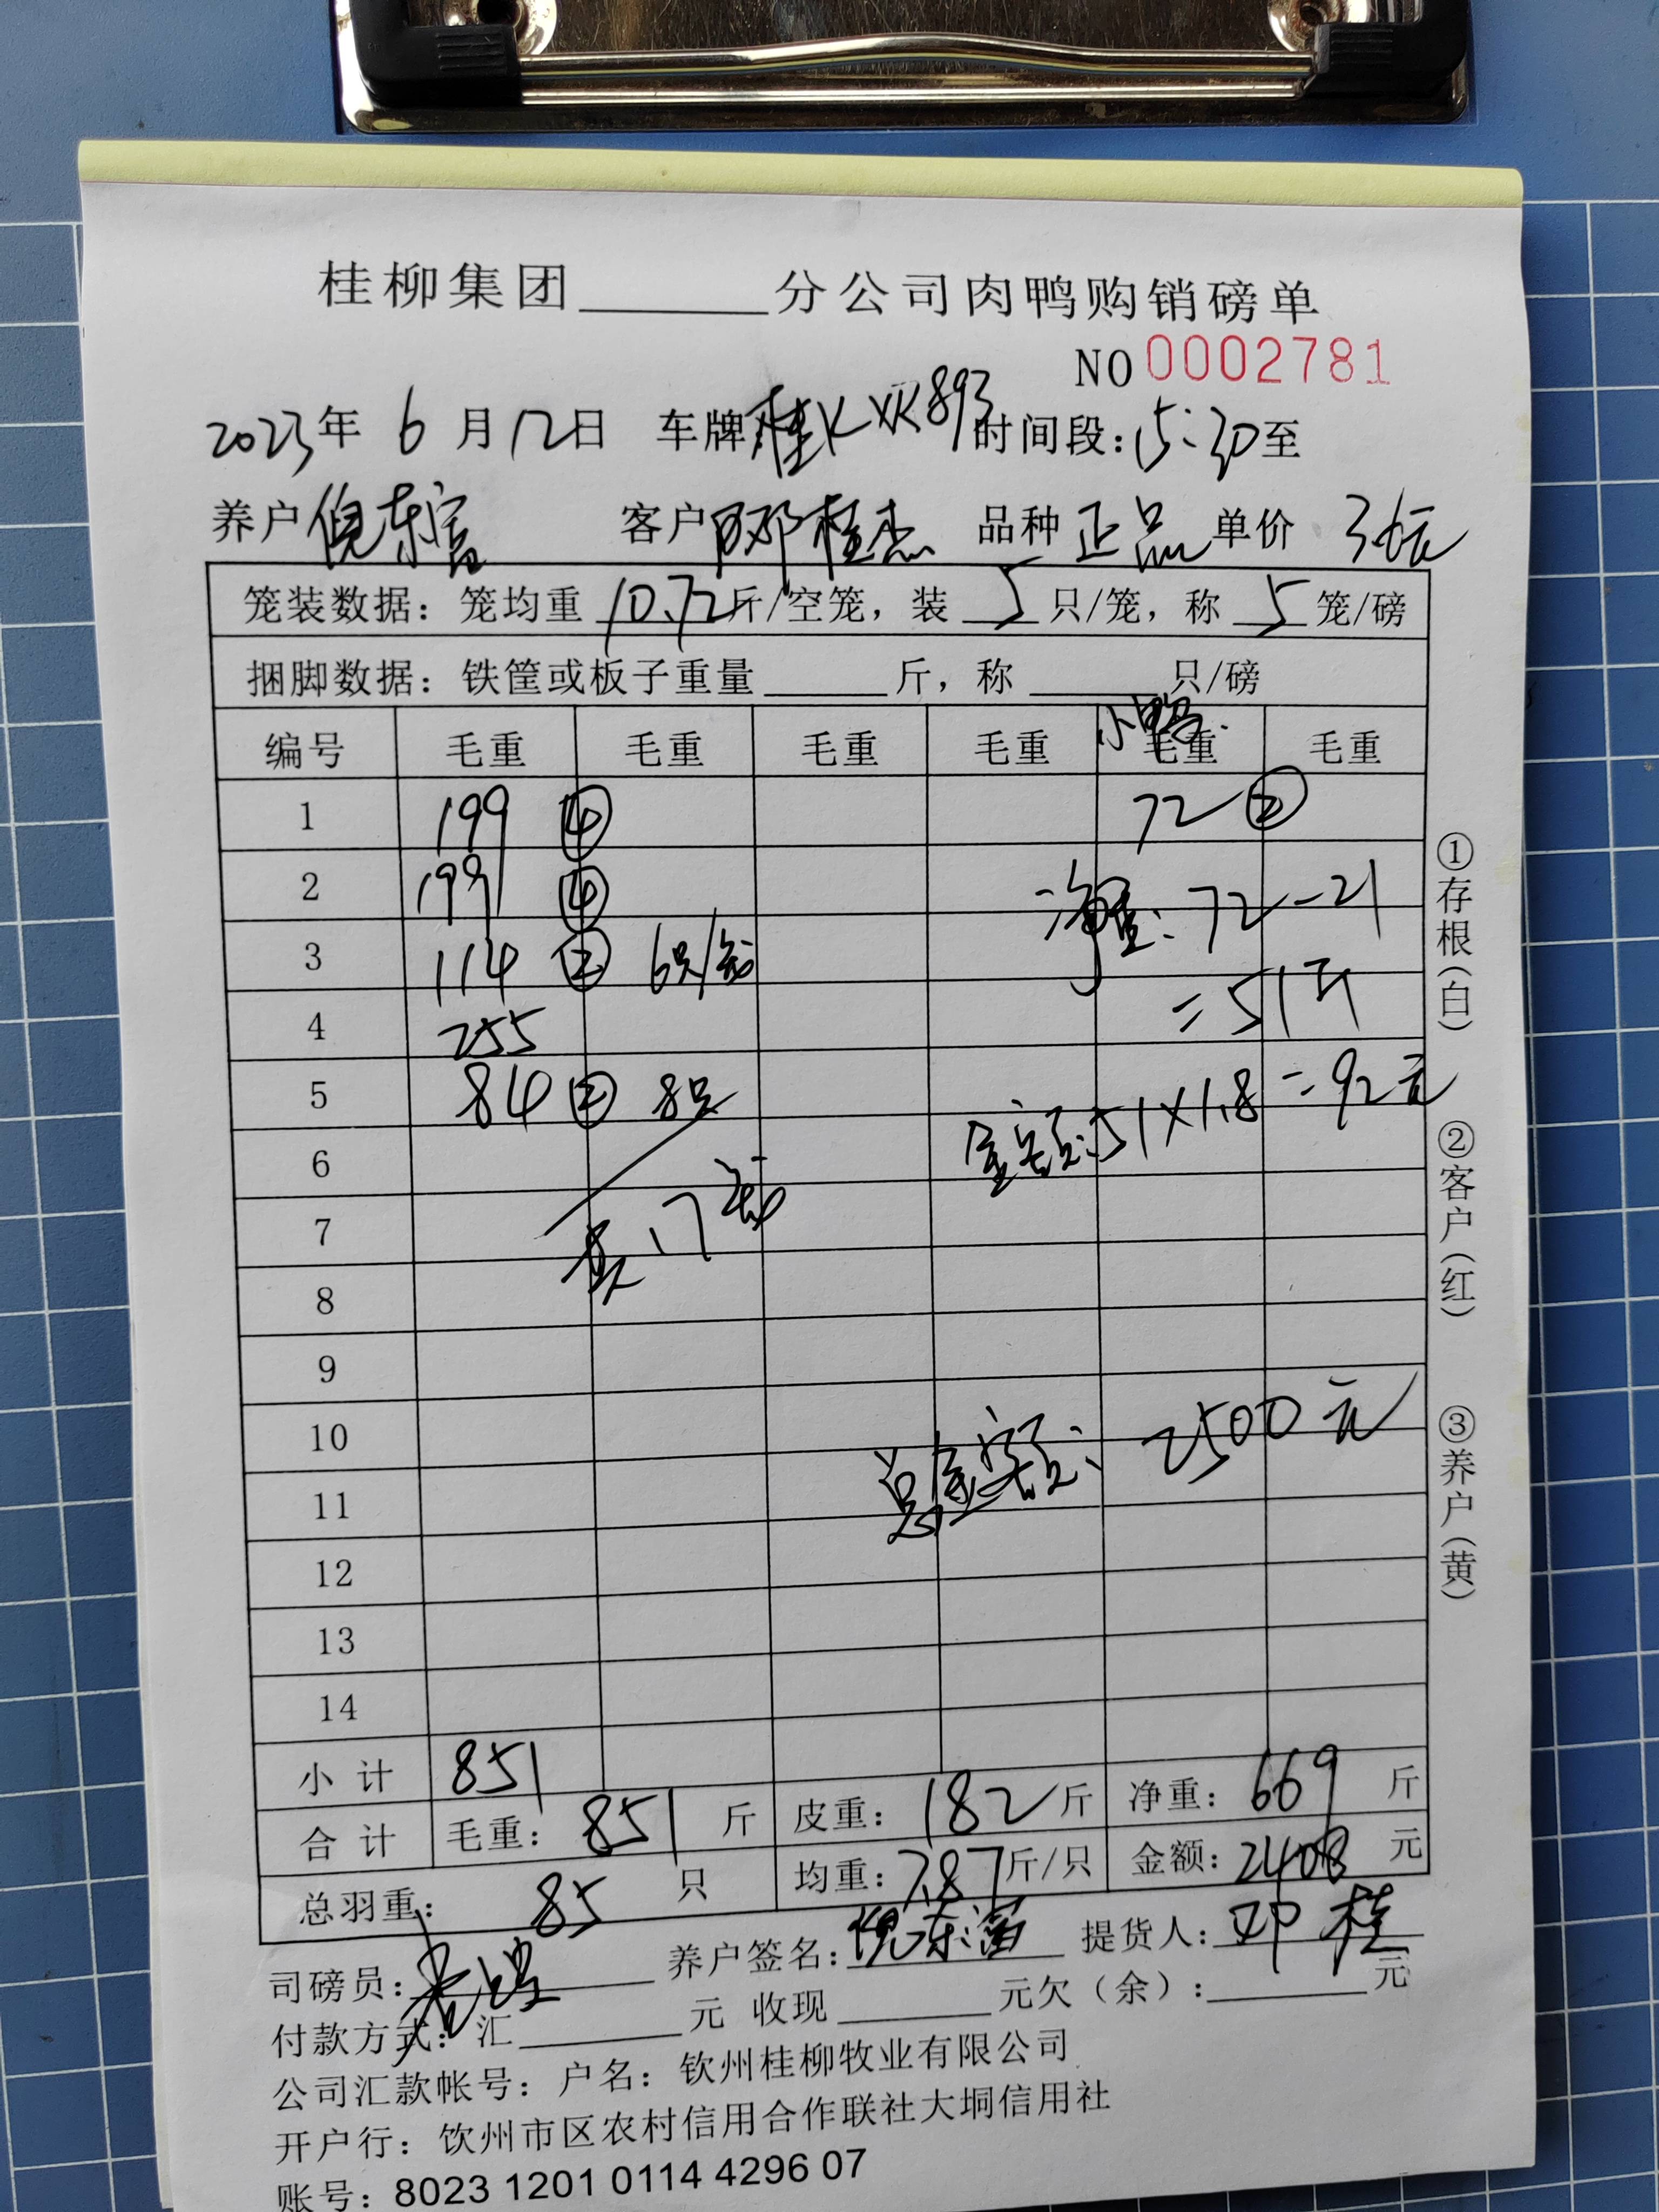 桂柳集团______分公司肉鸭购销磅单
NO 0002781
2023年 6 月 12日 车牌 桂KXK893 时间段:15:30至
养户 倪东富 客户 邓桂杰 品种 正品 单价 3.6元
笼装数据: 笼均重 10.72 斤/空笼, 装 5 只/笼, 称 5 笼/磅
捆脚数据: 铁筐或板子重量______斤, 称______只/磅
小鸭
编号 毛重 毛重 毛重 毛重 毛重 毛重
1 199 ④ 72 ②
2 199 ④ 净重: 72-21
3 114 ② 6只/笼 =51斤
4 255
5 84 ② 8只 金额: 51×1.8=92元
6
7 共17笼
8
9
10 总金额: 2500元
11
12
13
14
小计 851
合计 毛重: 851 斤 皮重: 182 斤 净重: 669 斤
总羽重: 85 只 均重: 7.87 斤/只 金额: 2408 元
司磅员: 养户签名: 倪东富 提货人: 邓桂
付款方式: 汇______元 收现______元欠(余):______元
公司汇款帐号: 户名: 钦州桂柳牧业有限公司
开户行: 钦州市区农村信用合作联社大垌信用社
账号: 8023 1201 0114 4296 07
①存根(白) ②客户(红) ③养户(黄)